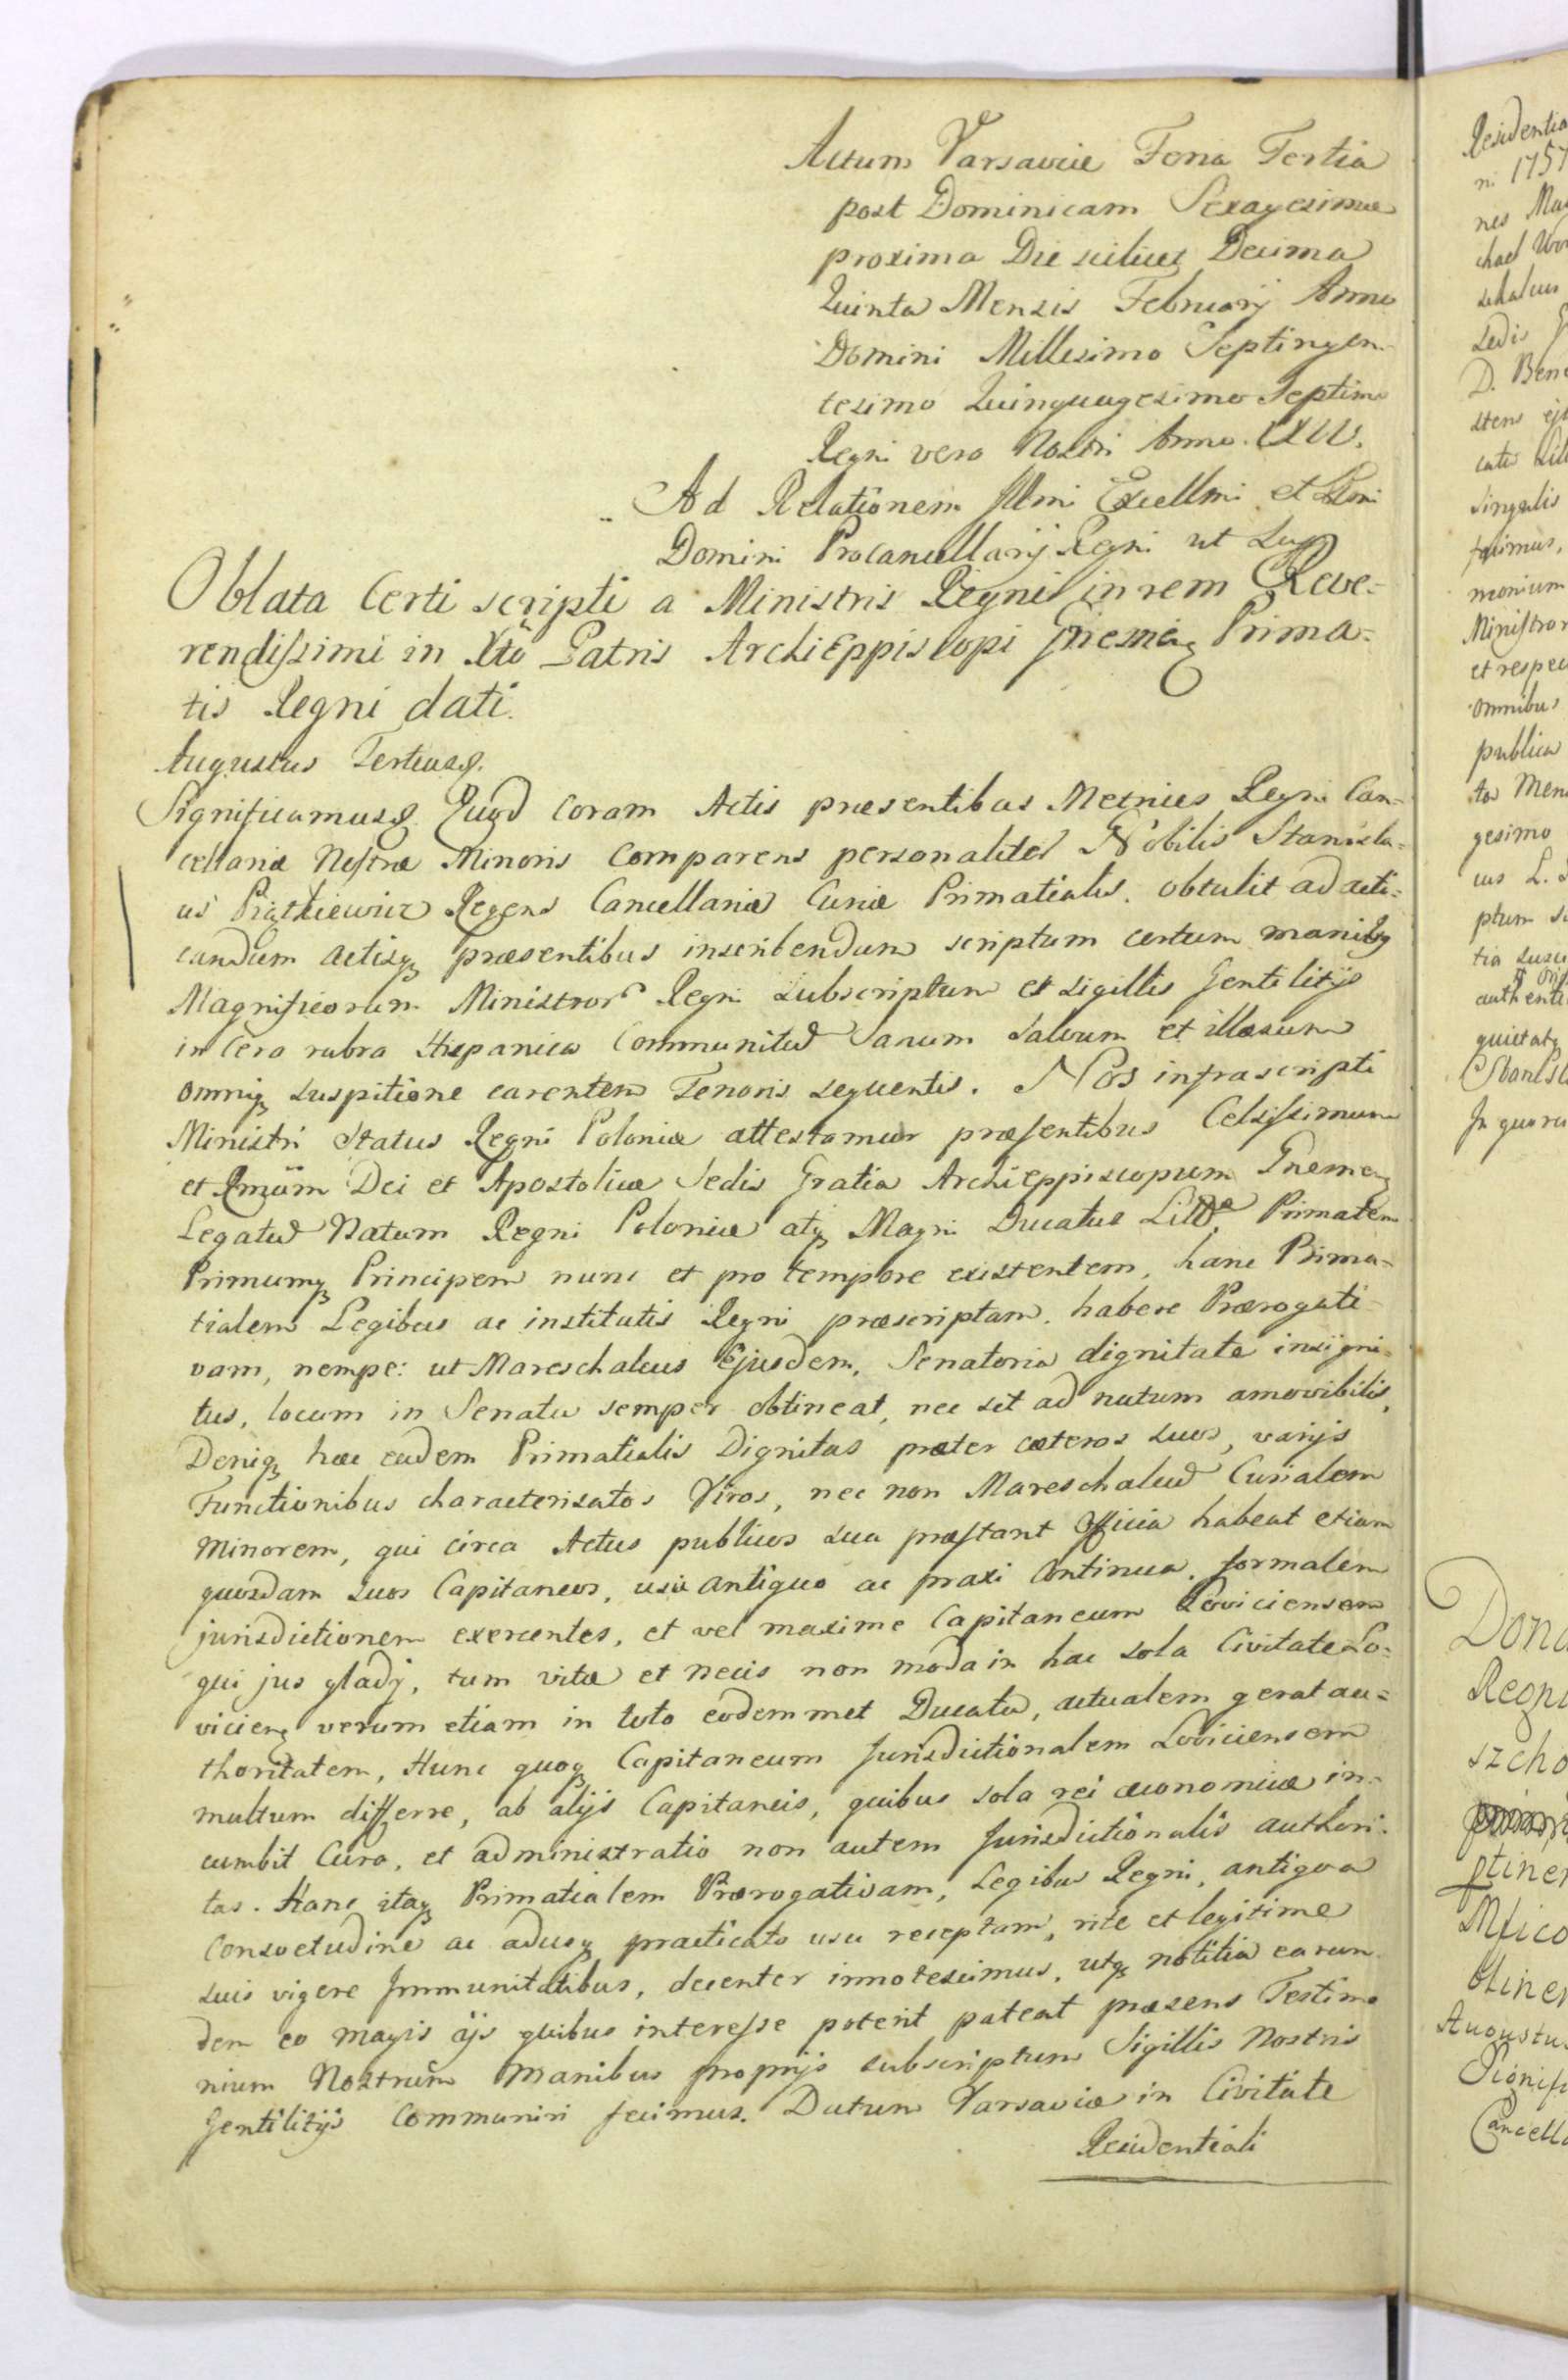 Actum Varsaviæ Feria Tertia
post Dominicam Sexagesimæ
proxima Die scilicet Decima
Quinta Mensis Februarij Anno
Domini Millesimo Septingen-
tesimo Quinquagesimo Septimo
Regni vero Nostri Anno
Ad Relationem Illmi Excellmi et
Domini Procancellarij Regni ut
Oblata Certi scripti a Ministris Regni in rem Reve-
rendissimi in Xto Patris ArchiEppiscopi Gnesnen Prima-
tis Regni dati.
Augustus Tertius
Significamus Quod coram Actis præsentibus Metrices Regni Can-
cellariæ Nostræ Minoris comparens personaliter Nobilis Stanisla-
us Piątkiewicz Regens Cancellariæ Curiæ Primatialis. obtulit ad acti-
candum actisq præsentibus inscribendum scriptum certum manibq
Magnificorum Ministror Regni subscriptum et sigillis Gentilitijs
in Cera rubra Hispanica Communitu Sanum salvum et illæsum
omniq suspitione carentem Tenoris sequentis. Nos infrascripti
Ministri Status Regni Poloniæ attestamur præsentibus Celsissimum
et Rmum Dei et Apostolicæ Sedis Gratia ArchiEppiscopum Gnesnen
Legatu Natum Regni Poloniæ atq Magni Ducatus Primatem
Primumq Principem nunc et pro tempore existentem, hanc Prima-
tialem Legibus ac institutis Regni præscriptam. habere Prærogati-
vam, nempe: ut Mareschalcus Ejusdem, Senatoria dignitate insigni-
tus, locum in Senatu semper obtineat, nec sit ad nutum amovibilis,
Deniq hæc eadem Primatialis Dignitas præter cæteros suos, varijs
Functionibus characterisatos Viros, nec non Mareschalcu Curialem
minorem, qui circa Actus publicos sua præstant officia habeat etiam
quosdam suos Capitaneos, usu antiquo ac praxi continua. formalem
jurisdictionem exercentes, et vel maxime Capitaneum Loviciensem
qui jus gladij, tum vitæ et necis non modo in hac sola Civitate Lo-
vicien verum etiam in toto eodemmet Ducatu, actualem gerat au-
thoritatem, Hunc quoq Capitaneum Jurisdictionalem Loviciensem
multum differre, ab alijs Capitaneis, quibus sola rei œconomicæ in-
cumbit Cura, et administratio non autem Jurisdictionalis authori-
tas. Hanc itaq Primatialem Prærogativam, Legibus Regni, antiqua
Consvetudine ac adusq practicato usu receptam, rite et legitime
suis vigere Immunitatibus, decenter innotescimus, utq notitia earun-
dem eo magis ijs quibus interesse poterit pateat præsens Testimo
nium Nostrum Manibus proprijs subscriptum Sigillis Nostris
Gentilitijs Communiri fecimus. Datum Varsaviæ in Civitate
Residentiali
Residentia
ni 1757
nes
chael
schalcus
Sedis
D. Bene
Singulis
monium
Ministror
et respec
omnibus
publica
tos Men
gesimo
ius L.
ptum
tia
authenti
quietatq
Stanisl
In quoru
Dona
Regni
szcho
ptiner
Mfico
btiner
Augustu
Signifi
Cancella